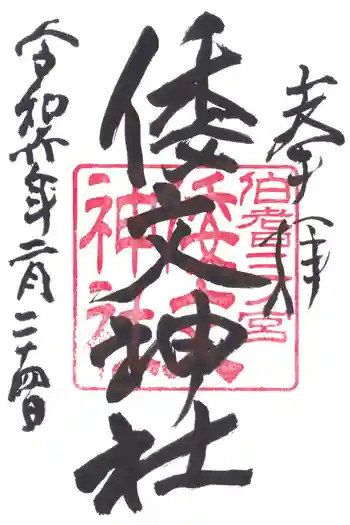 奉拝
伯耆三ノ宮
倭文神社
倭文
神社
令和六年二月二十四日